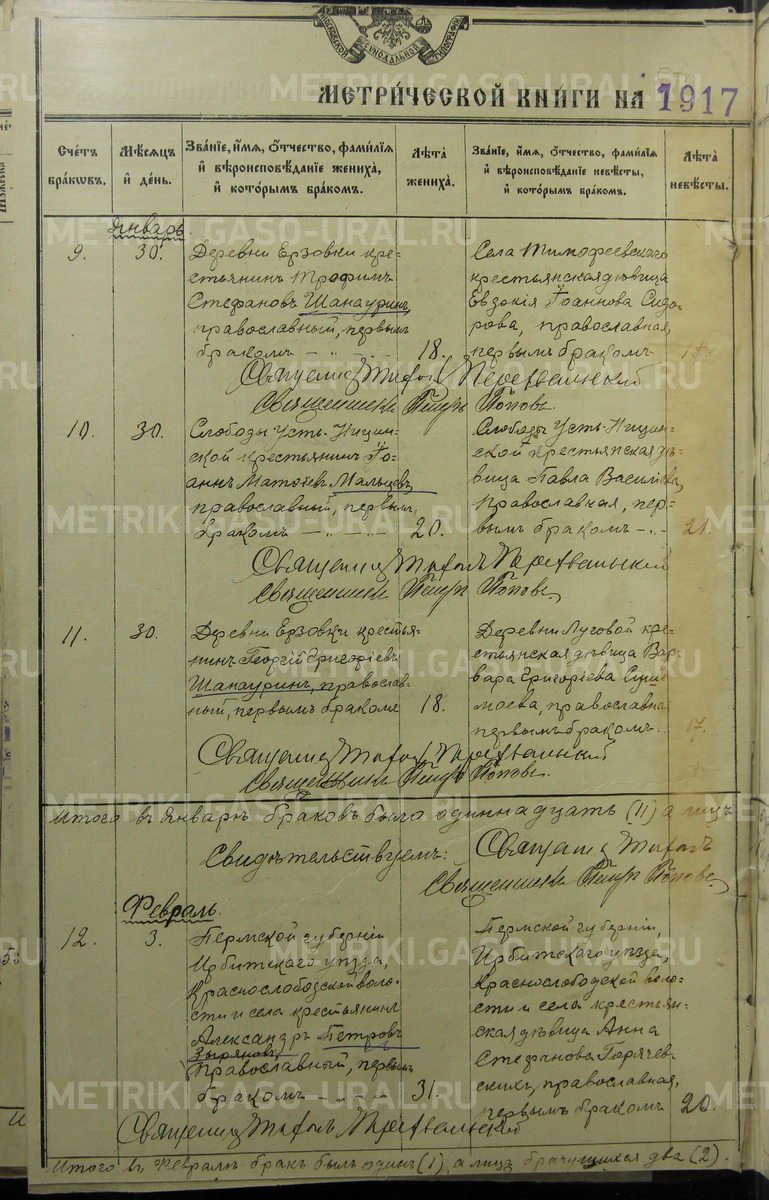 МОСКОВСКОЙ СѴНОДАЛЬНОЙ ТИПОГРАФІИ
МЕТРИ́ЧЕСКОЙ КНИ́ГИ НА 1917
Сче́тъ бра́кѡвъ.
Мѣ́сяцъ и҆ де́нь.
Зва́нїе, и҆́мѧ, ѻ҆́тчество, фами́лїѧ и҆ вѣроисповѣ́данїе жениха̀, и҆ кото́рымъ бра́комъ.
Лѣ́та жениха̀.
Зва́нїе, и҆́мѧ, ѻ҆́тчество, фами́лїѧ и҆ вѣроисповѣ́данїе невѣ́сты, и҆ кото́рымъ бра́комъ.
Лѣ́та невѣ́сты.
Январь.
9. 30.
Деревни Ерзовки кре=
стьянинъ Трофимъ
Стефановъ Шанауринъ,
православный, первымъ
бракомъ — „ — 18.
Села Тимофеевскаго
крестьянская дѣвица
Евдокія Іоаннова Сидо=
рова, православная,
первымъ бракомъ 18.
Священникъ
Священникъ Петръ Поповъ.
10. 30.
Слободы Усть-Ницин=
ской крестьянинъ Іо=
аннъ Матѳіевъ Мальцевъ,
православный, первымъ
бракомъ — „ — 20.
Слободы Усть-Ницин=
ской крестьянская дѣ=
вица Павла Василіева,
православная, пер=
вымъ бракомъ — „ — 21.
Священникъ
Священникъ Петръ Поповъ.
11. 30.
Деревни Ерзовки крестья=
нинъ Георгій Григоріевъ
Шанауринъ, православ=
ный, первымъ бракомъ 18.
Деревни Луговой кре=
стьянская дѣвица Вар=
вара Григоріева
православная
первымъ бракомъ. 17.
Священникъ
Священникъ Петръ Поповъ.
Итого въ Январѣ браковъ было одиннадцать (11) а лицъ
Свидѣтельствуемъ: Священникъ
Священникъ Петръ Поповъ.
Февраль.
12. 3.
Пермской губерніи
Ирбитскаго уѣзда,
Краснослободской воло=
сти и села крестьянинъ
Александръ Петровъ
Зыряновъ,
православный, первымъ
бракомъ — „ — 31.
Пермской губерніи,
Ирбитскаго уѣзда,
Краснослободской воло=
сти и села крестьян=
ская дѣвица Анна
Стефанова Горячев=
скихъ, православная,
первымъ бракомъ 20.
Священникъ
Итого въ Февралѣ бракъ былъ одинъ (1), а лицъ брачущихся два (2).
METRIKI.GASO-URAL.RU